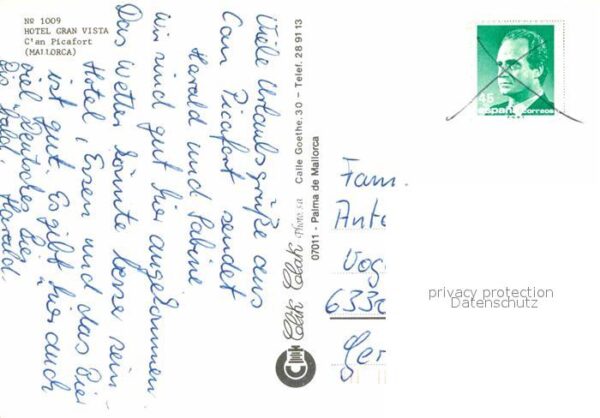 Nº 1009
HOTEL GRAN VISTA
C'an Picafort
(MALLORCA)
Viele Urlaubsgrüße aus
Can Picafort sendet
Harald und Sabine
Wir sind gut hier angekommen
Das Wetter könnte besser sein
Hotel, Essen und das Bier
ist gut. Es gibt hier auch
viel Deutsches Bier
Bis bald. Harald.
Clak Clak Photo, sa
Calle Goethe, 30 – Telef. 28 91 13
07011 – Palma de Mallorca
45
españa correos
Fam.
Anto
Vog
6330
Ger
privacy protection
Datenschutz